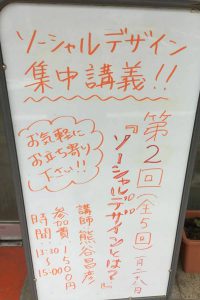 ソーシャルデザイン
集中講義!!
お気軽に
お立ち寄り
下さい!!
第2回(全5回)
『ソーシャルデザインとは?』
講師 熊谷昌彦
参加費 1500円
時間:13:30〜15:00